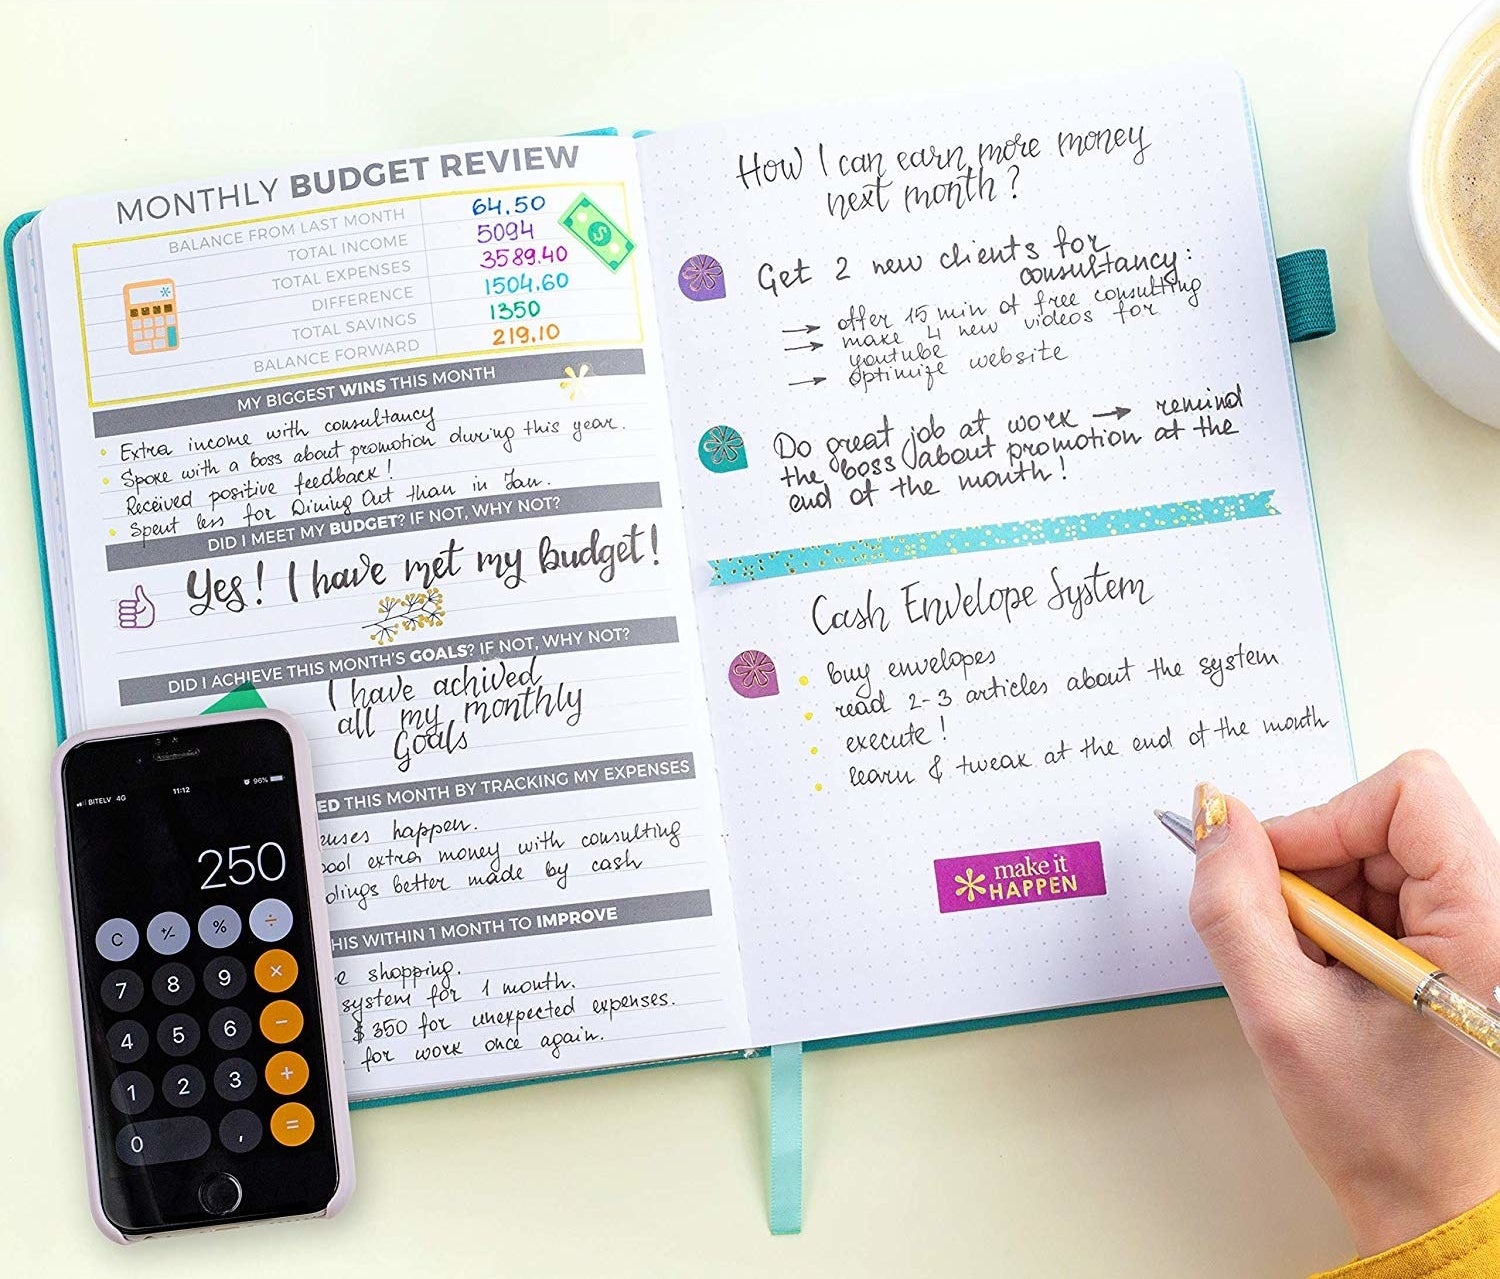 MONTHLY BUDGET REVIEW
BALANCE FROM LAST MONTH 64.50
TOTAL INCOME 5094
TOTAL EXPENSES 3589.40
DIFFERENCE 1504.60
TOTAL SAVINGS 1350
BALANCE FORWARD 219.10
MY BIGGEST WINS THIS MONTH
Extra income with consultancy
Spoke with a boss about promotion during this year.
Received positive feedback!
Spent less for Dining Out than in Jan.
DID I MEET MY BUDGET? IF NOT, WHY NOT?
Yes! I have met my budget!
DID I ACHIEVE THIS MONTH'S GOALS? IF NOT, WHY NOT?
I have achived
all my monthly
Goals
ED THIS MONTH BY TRACKING MY EXPENSES
happen.
extra money with consulting
better made by cash
HIS WITHIN 1 MONTH TO IMPROVE
shopping.
system for 1 month.
$350 for unexpected expenses.
for work once again.
How I can earn more money
next month?
Get 2 new clients for
consultancy:
→ offer 15 min of free consulting
→ make 4 new videos for
youtube
→ optimize website
Do great job at work → remind
the boss about promotion at the
end of the month!
Cash Envelope System
buy envelopes
read 2-3 articles about the system
execute!
learn & tweak at the end of the month
make it
HAPPEN
BITELV 4G 11:12 96%
250
C +/- % ÷
7 8 9 ×
4 5 6 −
1 2 3 +
0 , =